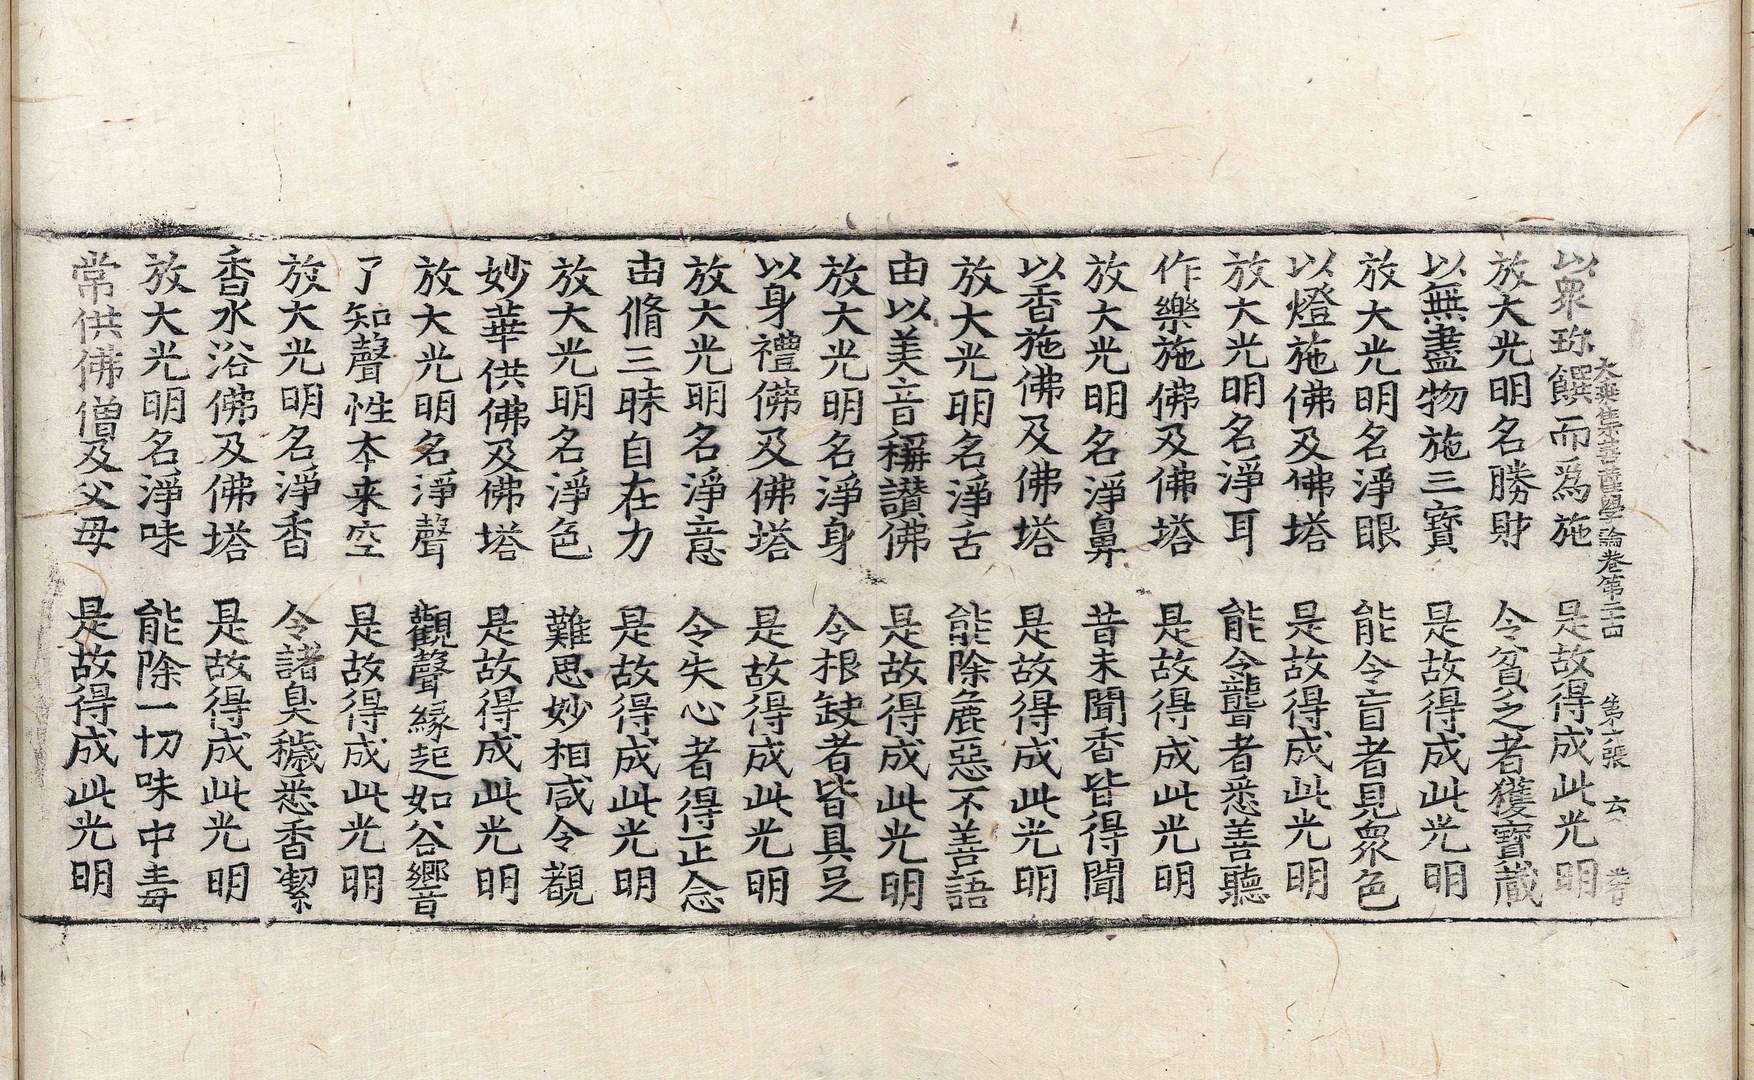 大乗集菩薩學論卷第二十四　第六張　云
以眾珎饌而為施　是故得成此光明
放大光明名勝財　令貧乏者獲寶蔵
以無盡物施三寶　是故得成此光明
放大光明名淨眼　能令盲者見眾色
以燈施佛及佛塔　是故得成此光明
放大光明名淨耳　能令聾者悉善聽
作樂施佛及佛塔　是故得成此光明
放大光明名淨鼻　昔未聞香皆得聞
以香施佛及佛塔　是故得成此光明
放大光明名淨舌　能除麁惡不善語
由以美音稱讃佛　是故得成此光明
放大光明名淨身　令根缺者皆具足
以身禮佛及佛塔　是故得成此光明
放大光明名淨意　令失心者得正念
由脩三昧自在力　是故得成此光明
放大光明名淨色　難思妙相咸令覩
妙華供佛及佛塔　是故得成此光明
放大光明名淨聲　觀聲緣起如谷響
了知聲性本来空　是故得成此光明
放大光明名淨香　令諸臭穢悉香潔
香水浴佛及佛塔　是故得成此光明
放大光明名淨味　能除一切味中毒
常供佛僧及父母　是故得成此光明